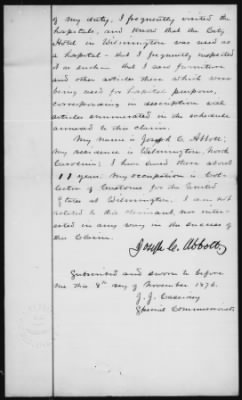 of my duty, I frequently visited the
hospitals, and know that the City
Hotel in Wilmington was used as
a hospital - that I frequently inspected
it as such - that I saw furniture
and other articles there which were
being used for hospital purposes,
corresponding in description with
articles enumerated in the schedule
annexed to this claim.
My name is Joseph C. Abbott;
my residence is Wilmington, North
Carolina; I have lived there about
11 years. My occupation is Col-
lector of Customs for the United
States at Wilmington. I am not
related to this claimant, nor inter-
ested in any way in the success of
this Claim.
Joseph C. Abbott
Subscribed and sworn to before
me this 8th day of November 1876.
J. J. Cassidey
Special Commissioner